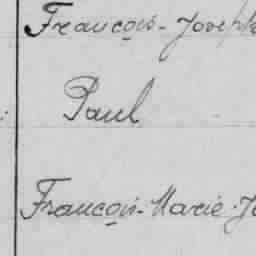 François-Joseph
Paul
François-Marie-Jo